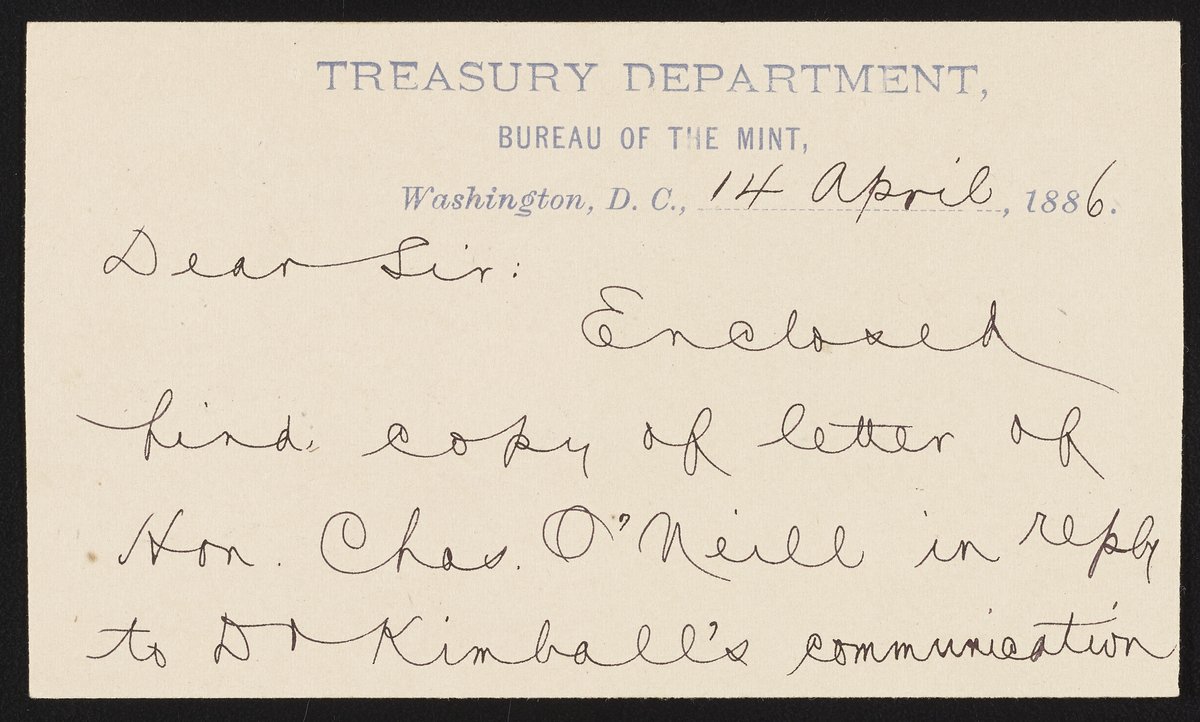 TREASURY DEPARTMENT,
BUREAU OF THE MINT,
Washington, D. C., 14 April, 1886.
Dear Sir:
Enclosed
find copy of letter of
Hon. Chas. O'Neill in reply
to Dr Kimball's communication